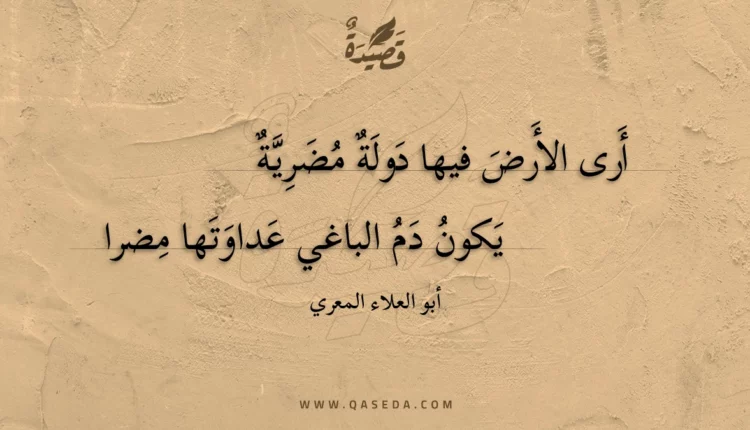 قَصِيْدَةٌ
أَرى الأَرضَ فيها دَولَةٌ مُضَرِيَّةٌ
يَكونُ دَمُ الباغي عَداوَتَها مِضرا
أبو العلاء المعري
WWW.QASEDA.COM